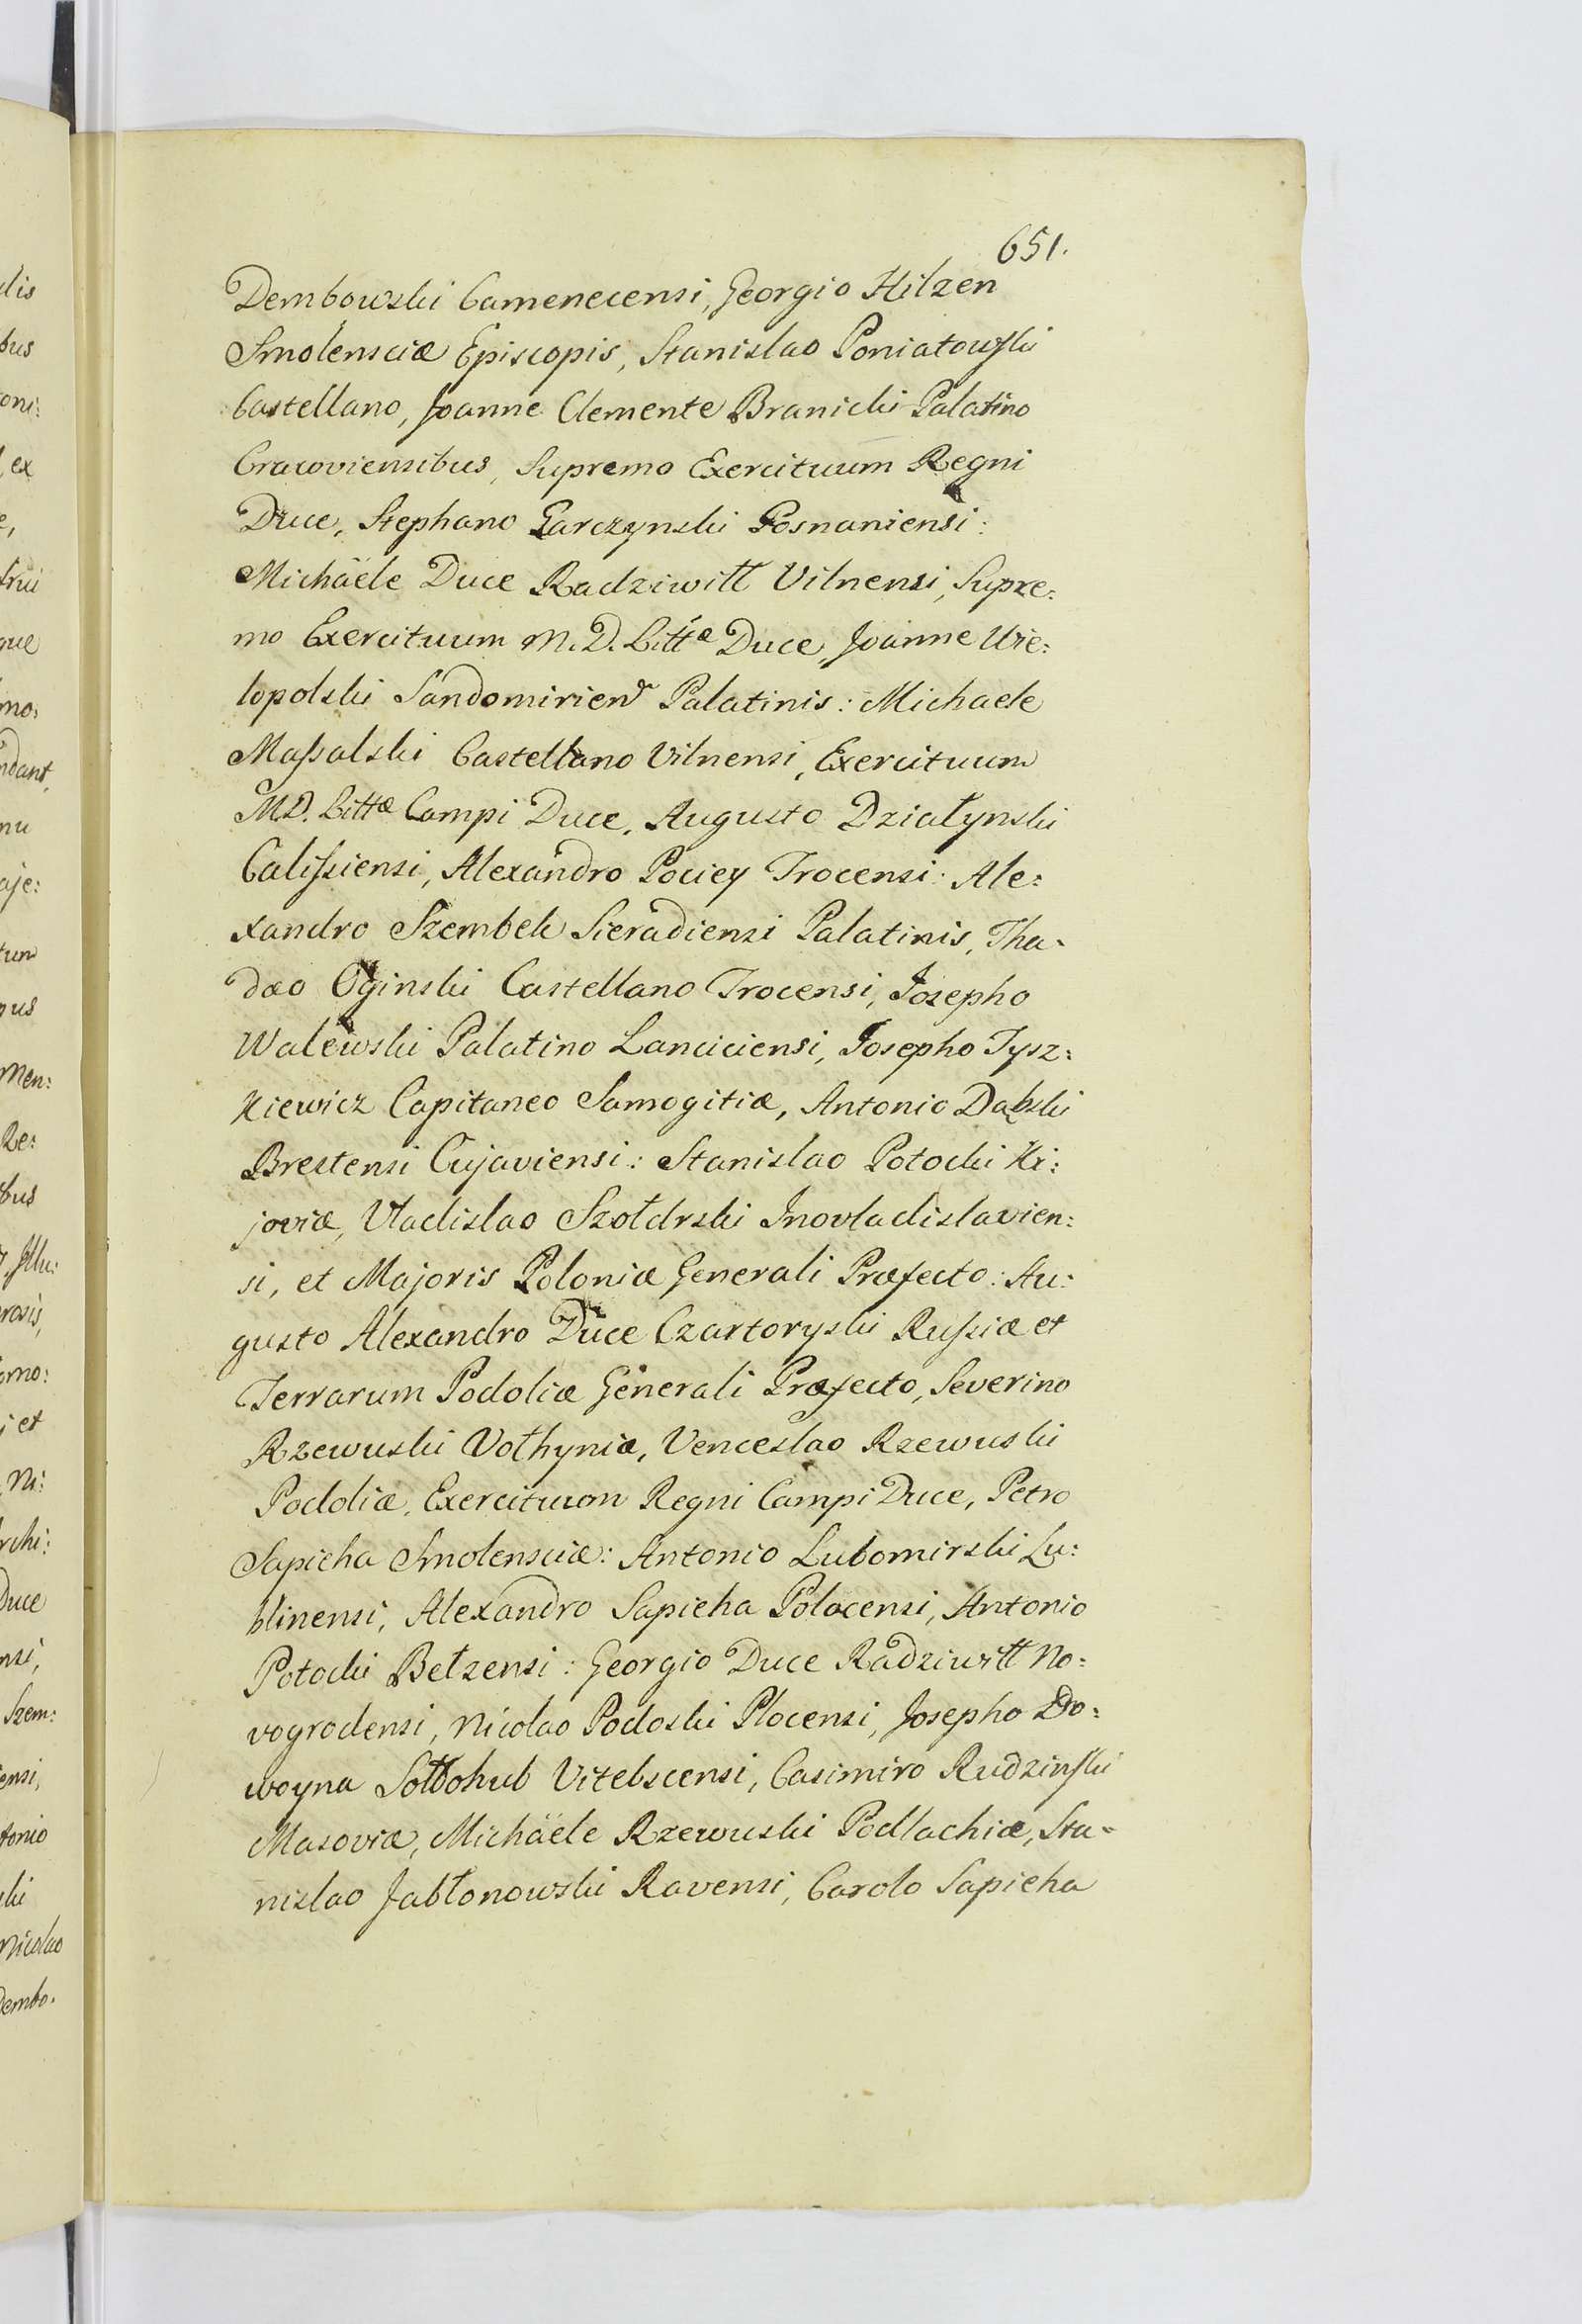 651.
Dembowski Camenecensi, Georgio Hilzen
Smolensciæ Episcopis, Stanislao Poniatowski
Castellano, Joanne Clemente Branicki Palatino
Cracoviensibus, Supremo Exercituum Regni
Duce, Stephano Garczynski Posnaniensi:
Michäele Duce Radziwiłł Vilnensi, Supre:
mo Exercituum M. D. Littæ Duce, Joanne Wie:
lopolski Sandomirien Palatinis: Michaele
Massalski Castellano Vilnensi, Exercituum
M.D. Littæ Campi Duce, Augusto Działynski
Calissiensi, Alexandro Pociey Trocensi: Ale:
xandro Szembek Sieradiensi Palatinis, Tha-
dæo Oginski Castellano Trocensi, Josepho
Walewski Palatino Lanciciensi, Josepho Tysz:
Kiewicz Capitaneo Samogitiæ, Antonio Dąbski
Brestensi Cujaviensi: Stanislao Potocki Ki:
joviæ, Vladislao Szołdrski Inovladislavien:
si, et Majoris Poloniæ Generali Præfecto: Au:
gusto Alexandro Duce Czartoryski Russiæ et
Terrarum Podoliæ Generali Præfecto, Severino
Rzewuski Volhyniæ, Venceslao Rzewuski
Podoliæ, Exercituum Regni Campi Duce, Petro
Sapieha Smolensciæ: Antonio Lubomirski Lu:
blinensi, Alexandro Sapieha Polocensi, Antonio
Potocki Belzensi: Georgio Duce Radziwiłł No:
vogrodensi, Nicolao Podoski Plocensi, Josepho Do:
woyna Sołłohub Vitebscensi, Casimiro Rudzinski
Masoviæ, Michäele Rzewuski Podlachiæ, Sta-
nislao Jabłonowski Ravensi, Carolo Sapieha